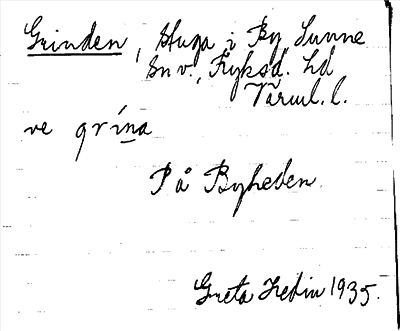 Grinden, Stuga i By Sunne
sn v., Fryksd. hd
Värml. l.
ve grína
På Byheden.
Greta Hedin 1935.